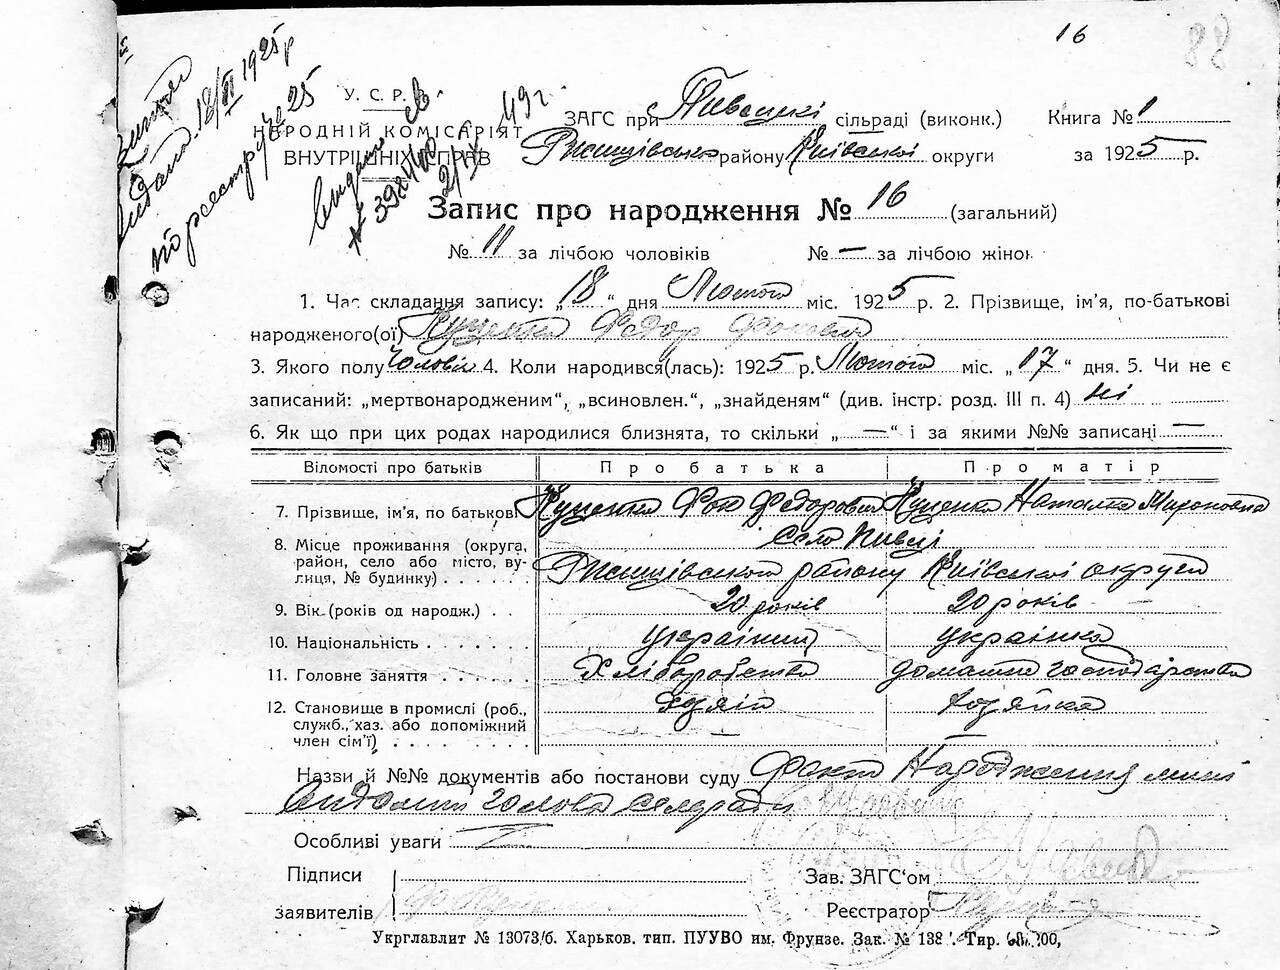 16
88
18/VI 1925 р
по реестру № 25
49 г.
У. С. Р.
НАРОДНІЙ КОМІСАРІЯТ
ВНУТРІШНІХ СПРАВ
ЗАГС при Пивецкі сільраді (виконк.) Книга № 1
Ржищівсько району Київської округи за 1925 р.
Запис про народження № 16 (загальний)
№ 11 за лічбою чоловіків № — за лічбою жінок
1. Час складання запису: „18“ дня Лютого міс. 1925 р. 2. Прізвище, ім'я, по-батькові
народженого(ої) Куценко Федор Фокович
3. Якого полу Чоловіч 4. Коли народився(лась): 1925 р. Лютого міс. „17“ дня. 5. Чи не є
записаний: „мертвонародженим“, „всиновлен.“, „знайденям“ (див. інстр. розд. III п. 4) ні
6. Як що при цих родах народилися близнята, то скільки „—“ і за якими №№ записані —
Відомості про батьків Про батька Про матір
7. Прізвище, ім'я, по батькові Куценко Фок Федорович Куценко Наталка Мироновна
8. Місце проживання (округа, район, село або місто, вулиця, № будинку) Село Пивці
Ржищівського району Київської округи
9. Вік (років од народж.) 20 років 20 років
10. Національність Українец Українка
11. Головне заняття Хліборобство домашне господарство
12. Становище в промислі (роб., служб., хаз. або допоміжний член сім'ї) Хазяїн Хазяйка
Назви й №№ документів або постанови суду Факт Народження мині
видомий голова сельради
Особливі уваги
Підписи
заявителів
Зав. ЗАГС'ом
Реєстратор
Укрглавлит № 13073/б. Харьков. тип. ПУУВО им. Фрунзе. Зак. № 138 Тир.